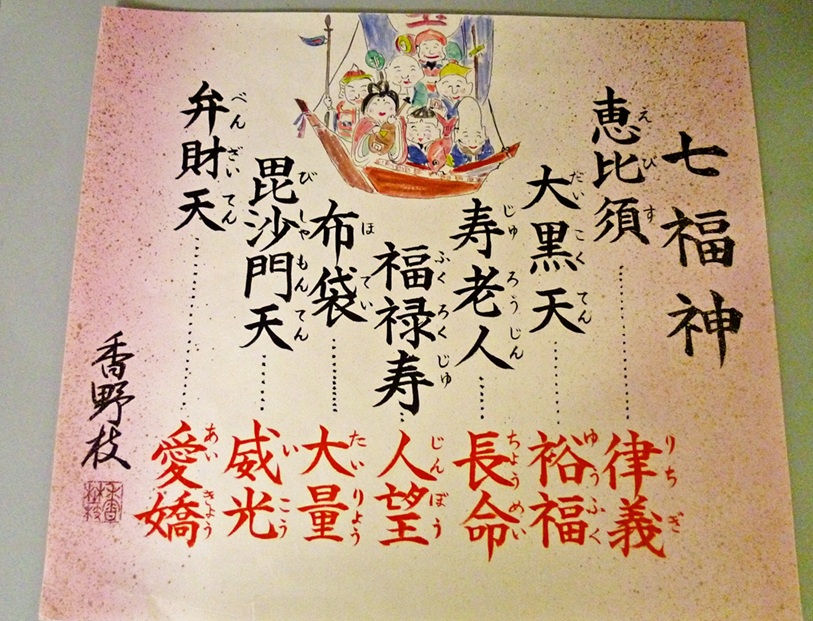 七福神
恵比須……律義
えびす りちぎ
大黒天……裕福
だいこくてん ゆうふく
寿老人……長命
じゅろうじん ちょうめい
福禄寿…人望
ふくろくじゅ じんぼう
布袋……大量
ほてい たいりょう
毘沙門天……威光
びしゃもんてん いこう
弁財天……愛嬌
べんざいてん あいきょう
香野枝
宝